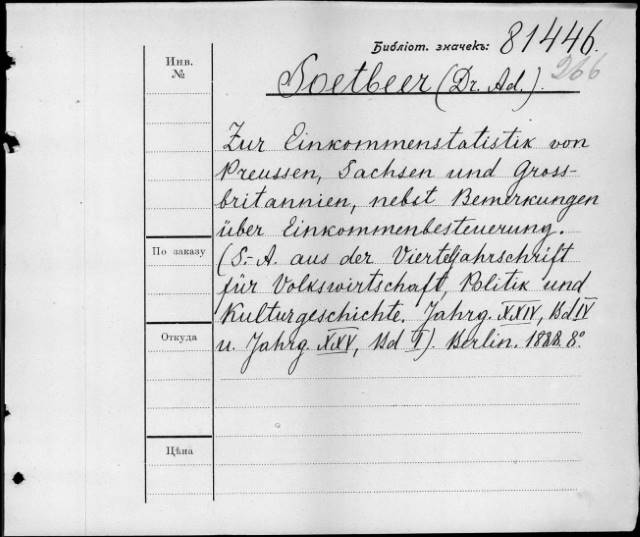 Библіот. значекъ: 81446.
266
Инв.
№
Soetbeer (Dr. Ad.).
Zur Einkommenstatistik von
Preussen, Sachsen und Gross-
britannien, nebst Bemerkungen
über Einkommenbesteuerung.
По заказу
(S.-A. aus der Vierteljahrschrift
für Volkswirtschaft, Politik und
Kulturgeschichte, Jahrg. XXIV, Bd IV
Откуда
u. Jahrg. XXV, Bd I). Berlin. 1888. 8º.
Цѣна